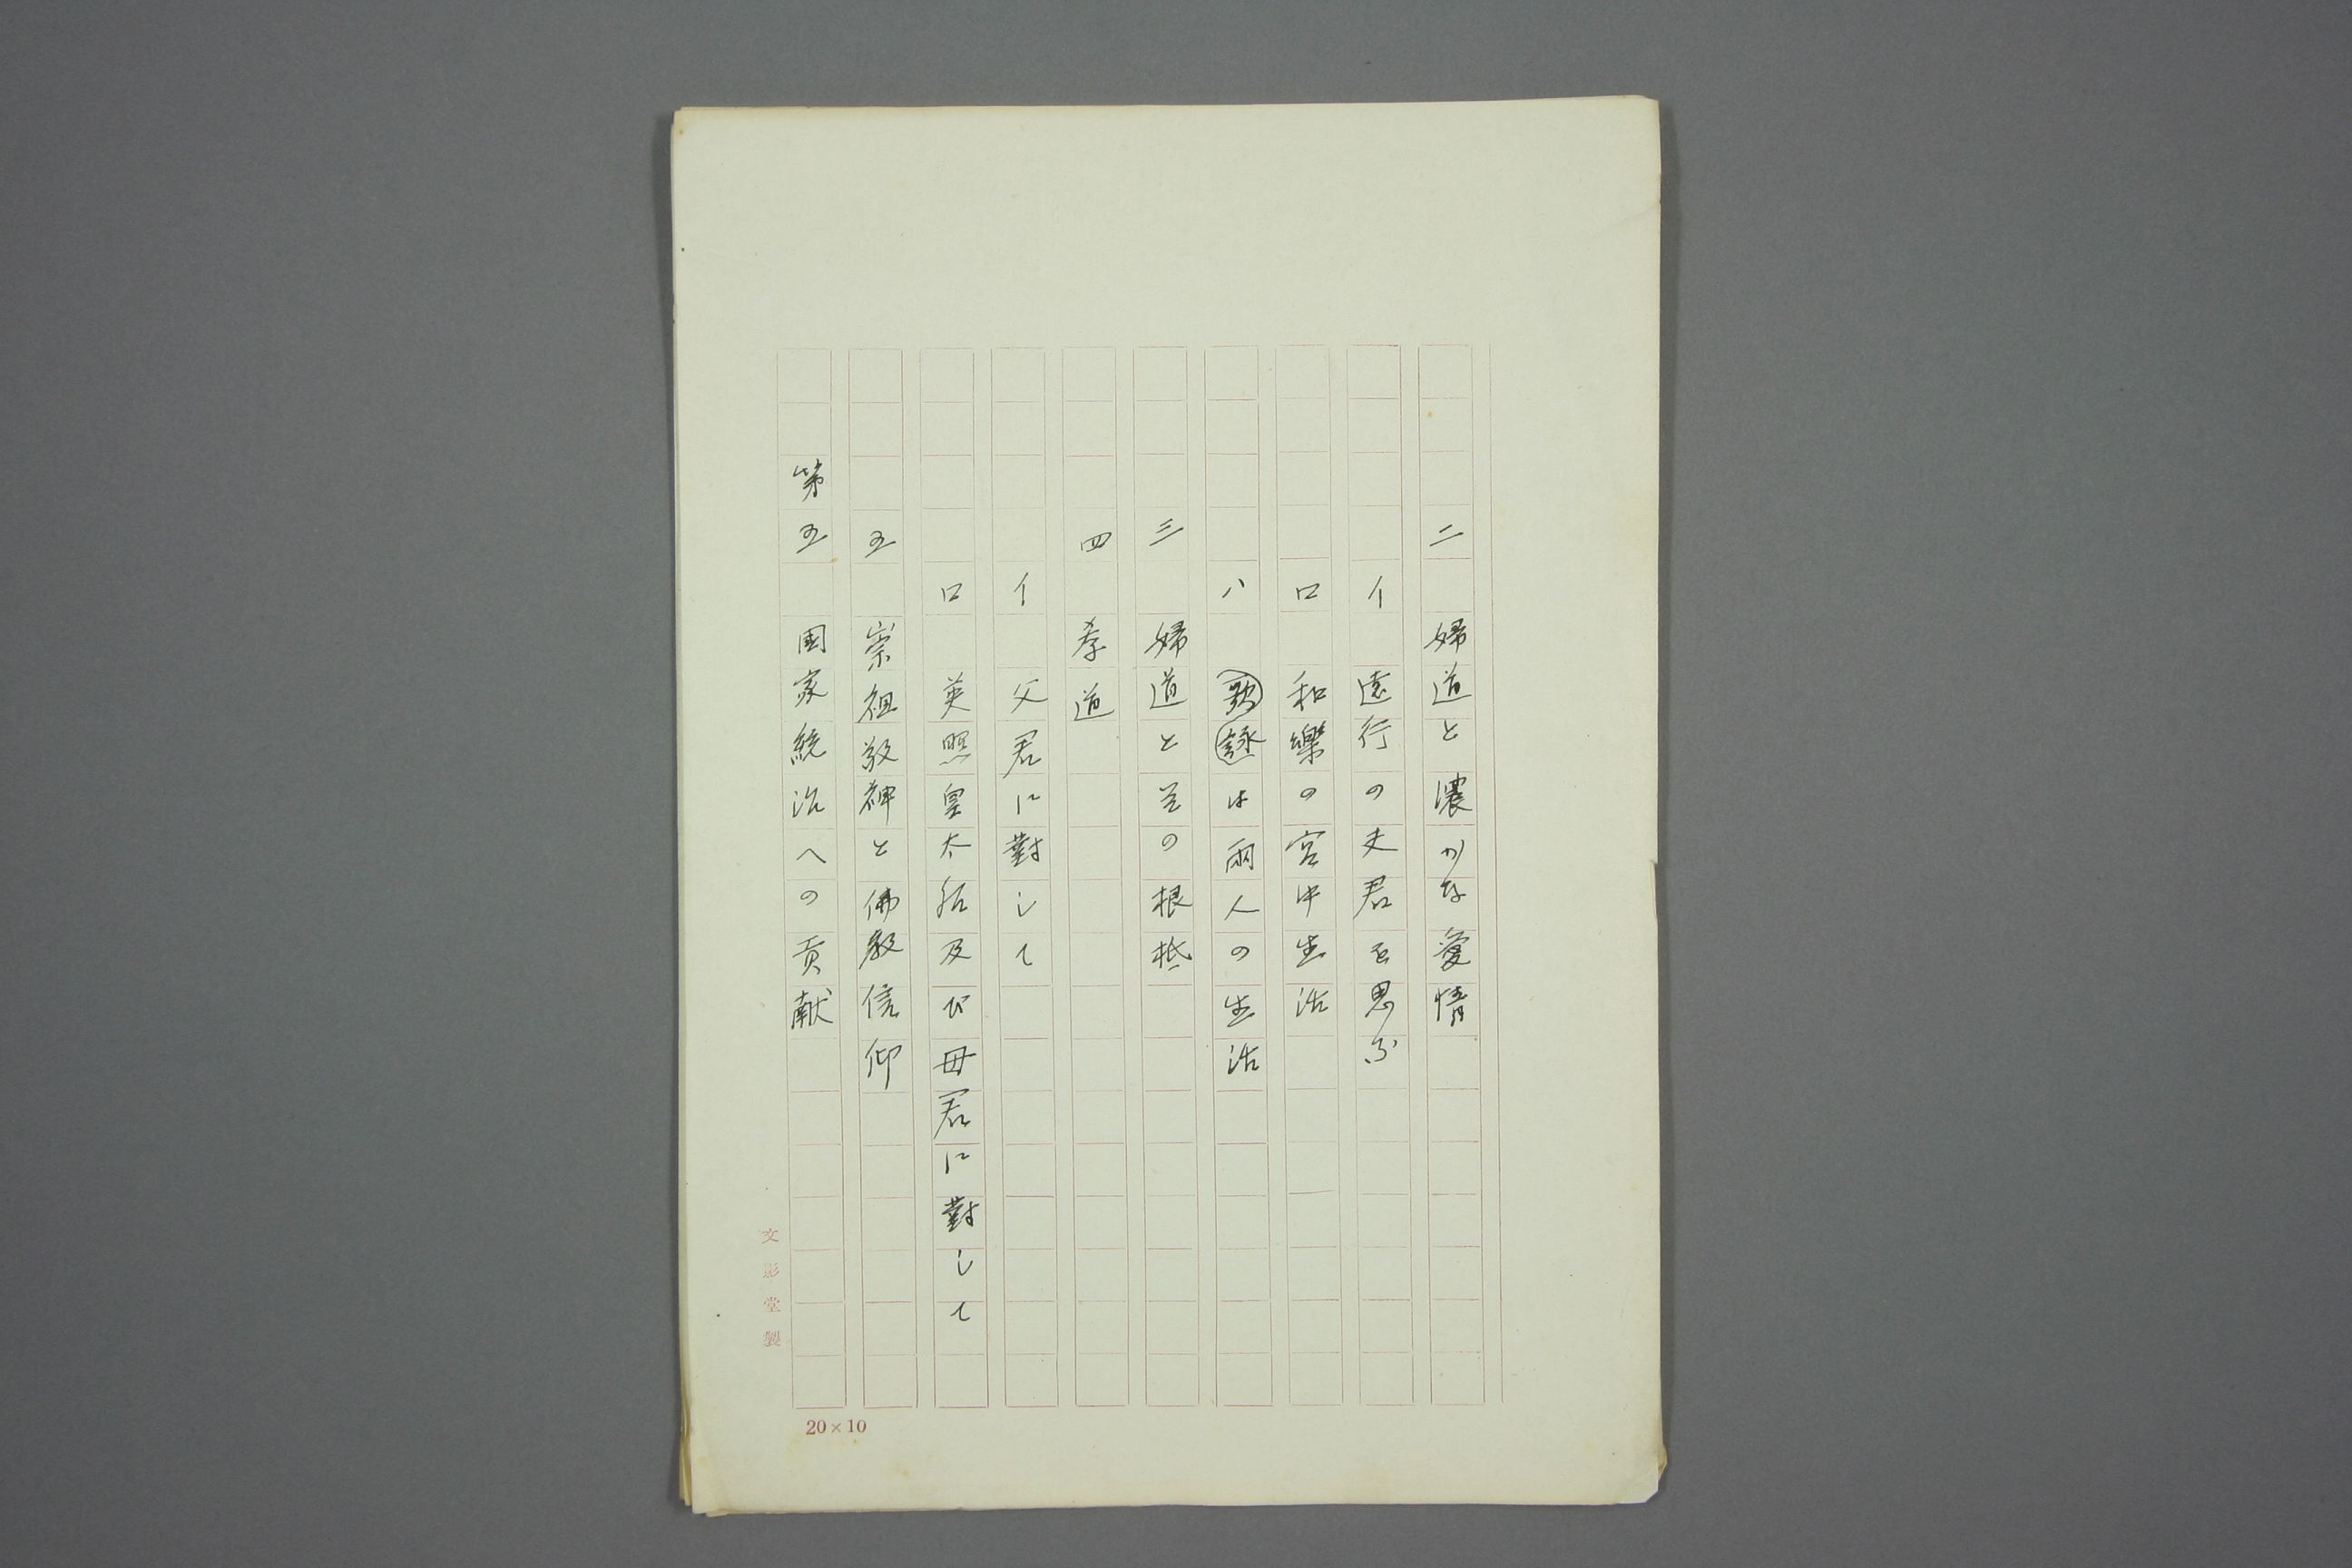 二 婦道と濃かな愛情
イ 遠行の夫君を思ふ
ロ 和樂の宮中生活
ハ 歌詠は兩人の生活
三 婦道とその根柢
四 孝道
イ 父君に對して
ロ 英照皇太后及び母君に對して
五 崇祖敬神と佛教信仰
第五 国家統治への貢献
文影堂製
20×10